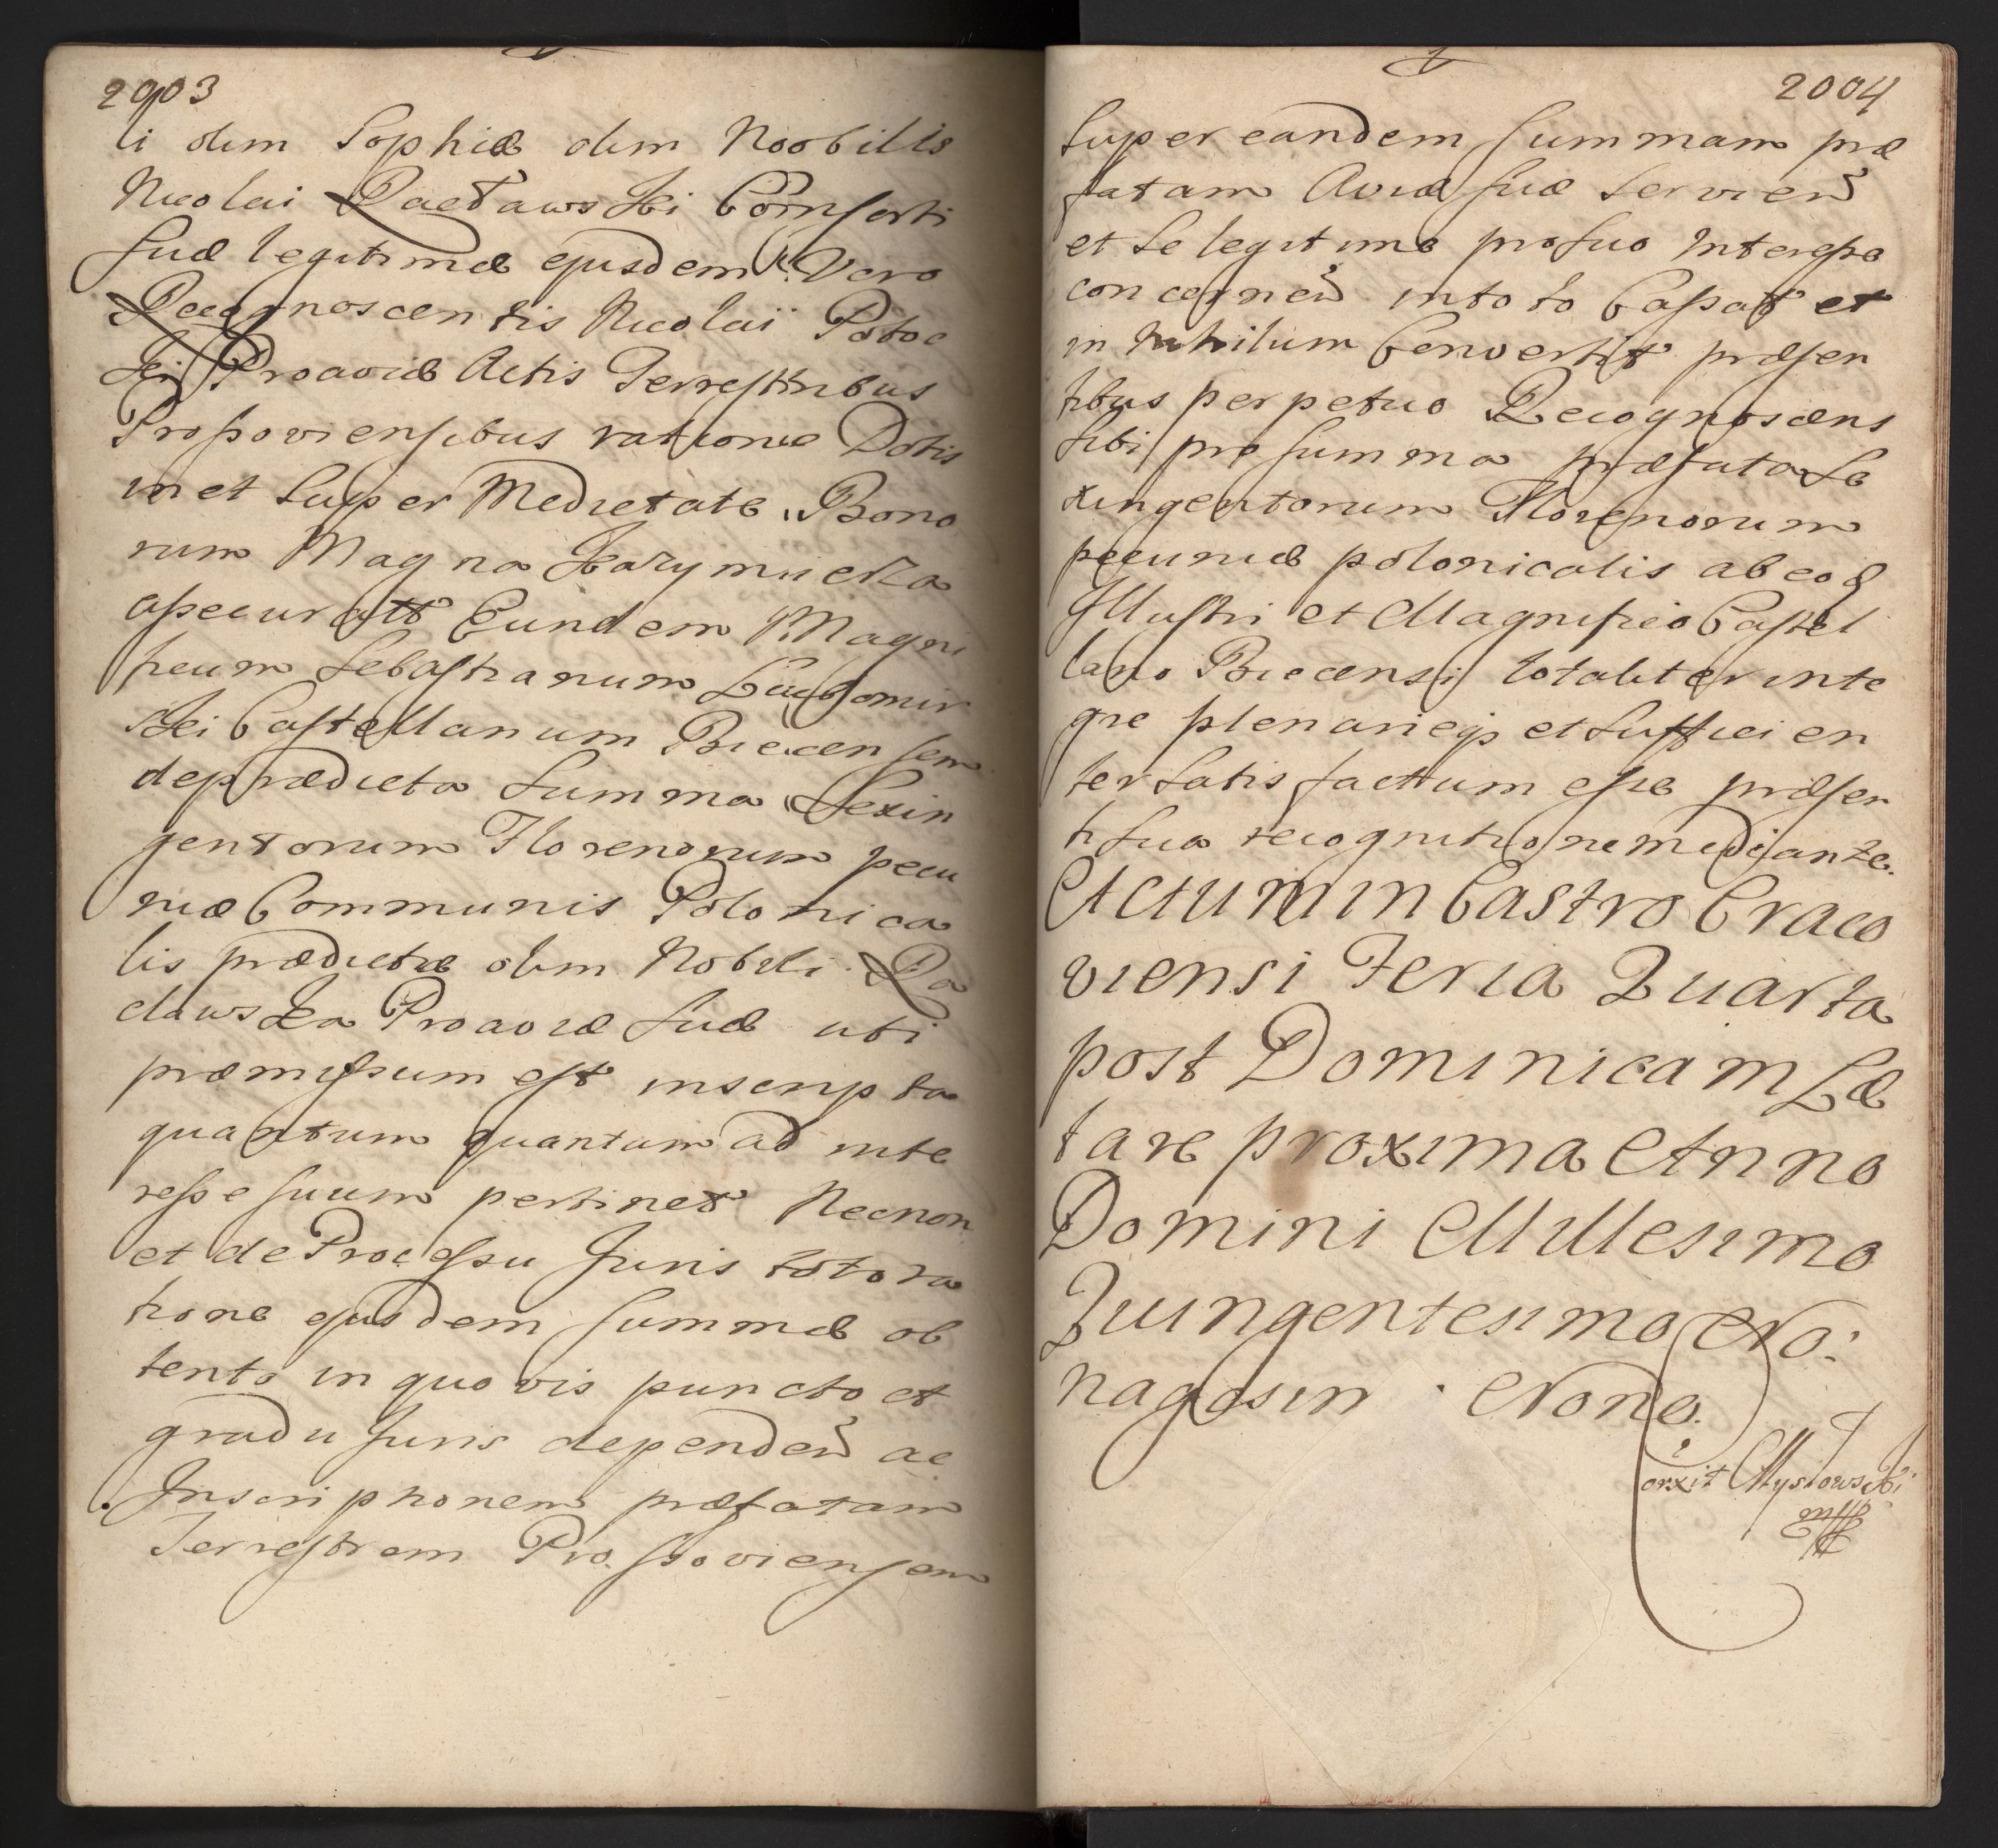 2003
li olim Sophiæ olim Noobilis
Nicolai Ractawski Comsorti
suæ legitimæ ejusdem Vero
Recognoscentis Nicolai Potoc
ki Proaviæ Actis Terrestribus
Prossoviensibus ratione Dotis
in et super Medietate Bono
rum Magna Kazymierza
assecuratt Eundem Magni
ficum Sebastianum Lubomir
ski Castellanum Biecensem
de prædicta Summa Sexin
gentorum Florenorum pecu
niæ Communis Polonica
lis prædictæ olim Nobili Ra
clawska Proaviæ suæ uti
præmissum est inscripta
quantum quantum ad inte
resse suum pertinet Necnon
et de Processu Juris toto ra
tione ejusdem summæ ob
tento in quovis puncto et
gradu Juris dependen ac
Inscriptionem præfatam
Terrestrem Prossoviensem
2004
super eandem summam præ
fatam Aviæ suæ servien
et se legitime pro suo Interesse
concernen in toto Cassat et
in Nihilum Convertit præsen
tibus perpetuo Recognoscens
sibi pro summa præfata Se
xingentorum Florenorum
pecuniæ polonicalis ab eod
Illustri et Magnifico Castel
lano Biecensi totaliter inte
gre plenarieqs et suffici en
ter satisfacttum esse præsen
ti sua recognitione mediante.
Actum in Castro Craco
viensi Feria Quarta
post Dominicam Læ
tare proxima Anno
Domini Millesimo
Quingentesimo No:
nagesim Nono.
orxit Mystowski